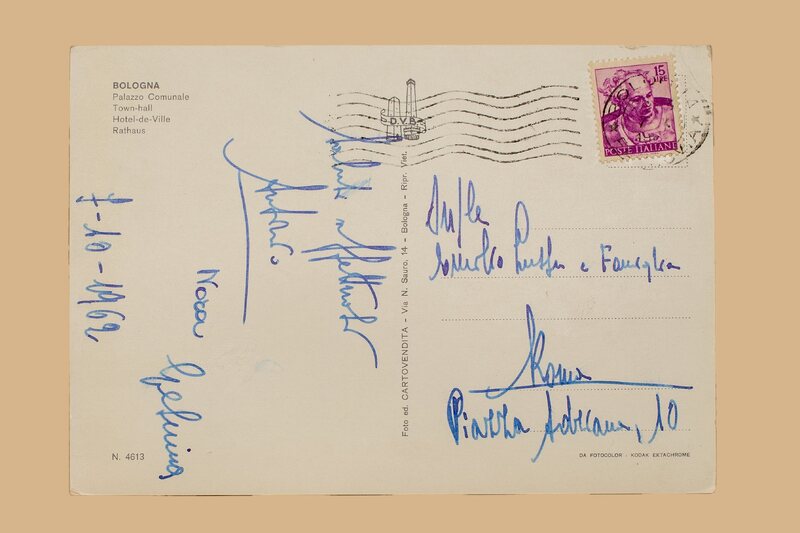 BOLOGNA
Palazzo Comunale
Town-hall
Hotel-de-Ville
Rathaus
7-10-1962
Nora
Saluti affettuosi
Antonio
N. 4613
Foto ed. CARTOVENDITA - Via N. Sauro, 14 - Bologna - Ripr. Viet.
D.V.B.
15
LIRE
POSTE ITALIANE
e Famiglia
Roma
Piazza Adriana, 10
DA FOTOCOLOR - KODAK EKTACHROME